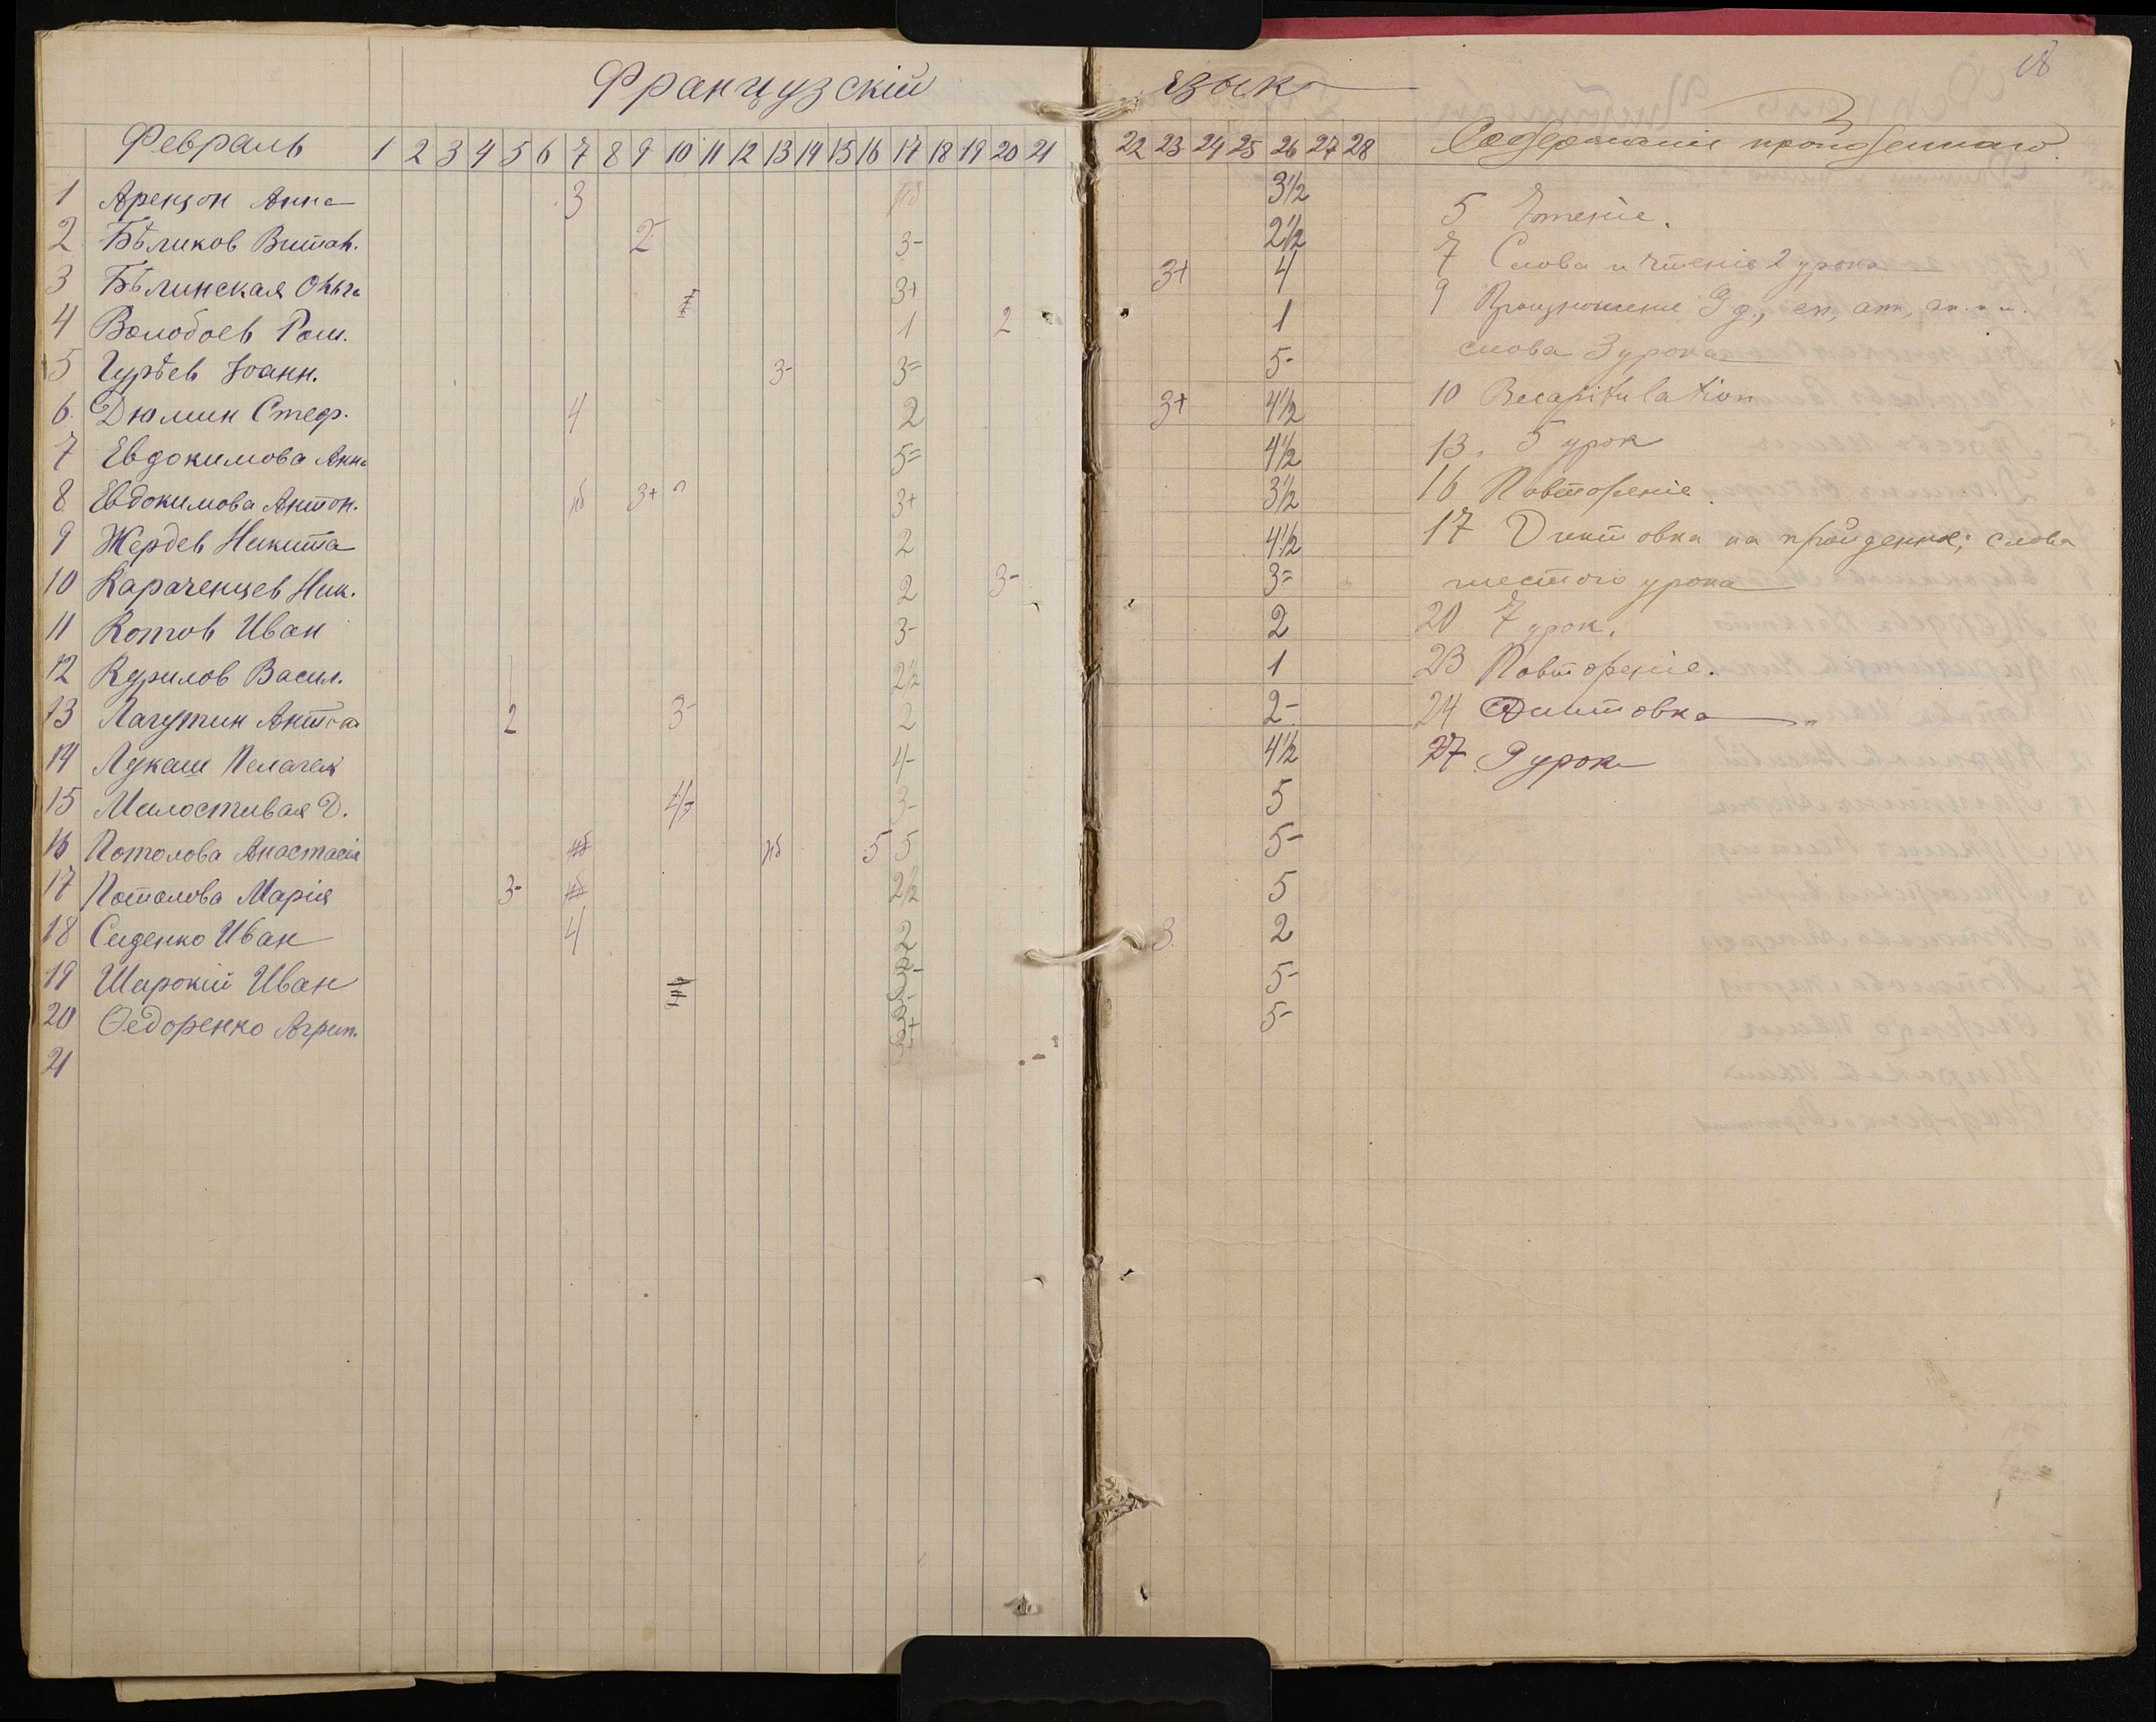 Французскій языкъ
18
Февраль 1 2 3 4 5 6 7 8 9 10 11 12 13 14 15 16 17 18 19 20 21 22 23 24 25 26 27 28 Содержаніе пройденнаго.
1 Аренцон Анна 3 нб 3½
2 Бѣликов Витал. 2- 3- 2½
3 Бѣлинская Ольга 3+ 3+ 4
4 Волобоев Гом. 1 2 1
5 Гурѣев Іоанн. 3- 3= 5-
6 Дюмин Стеф. 4 2 3+ 4½
7 Евдокимова Анна 5= 4½
8 Евдокимова Антон. нб 3+ 3+ 3½
9 Жердев Никита 2 4½
10 Караченцев Ник. 2 3- 3=
11 Котов Иван 3- 2
12 Курилов Васил. 2½ 1
13 Лагутин Антон 2 3- 2 2-
14 Лукаш Пелагея 4- 4½
15 Милостивая Д. 4- 3- 5
16 Потолова Анастасія нб нб 5 5 5-
17 Потолова Марія 3- нб 2½ 5
18 Сиденко Иван 4 2 3 2
19 Широкій Иван 3- 5-
20 Ѳедоренко Агрип. 3+ 5-
21
5 Чтеніе.
7 Слова и чтеніе 2 урока
9 Произношеніе en, am, an
слова 3 урока
10 Recapitulation
13. 5 урок
16 Повтореніе.
17 Диктовка на пройденное; слова
шестого урока
20 7 урок.
23 Повтореніе.
24 Диктовка
27 9 урок